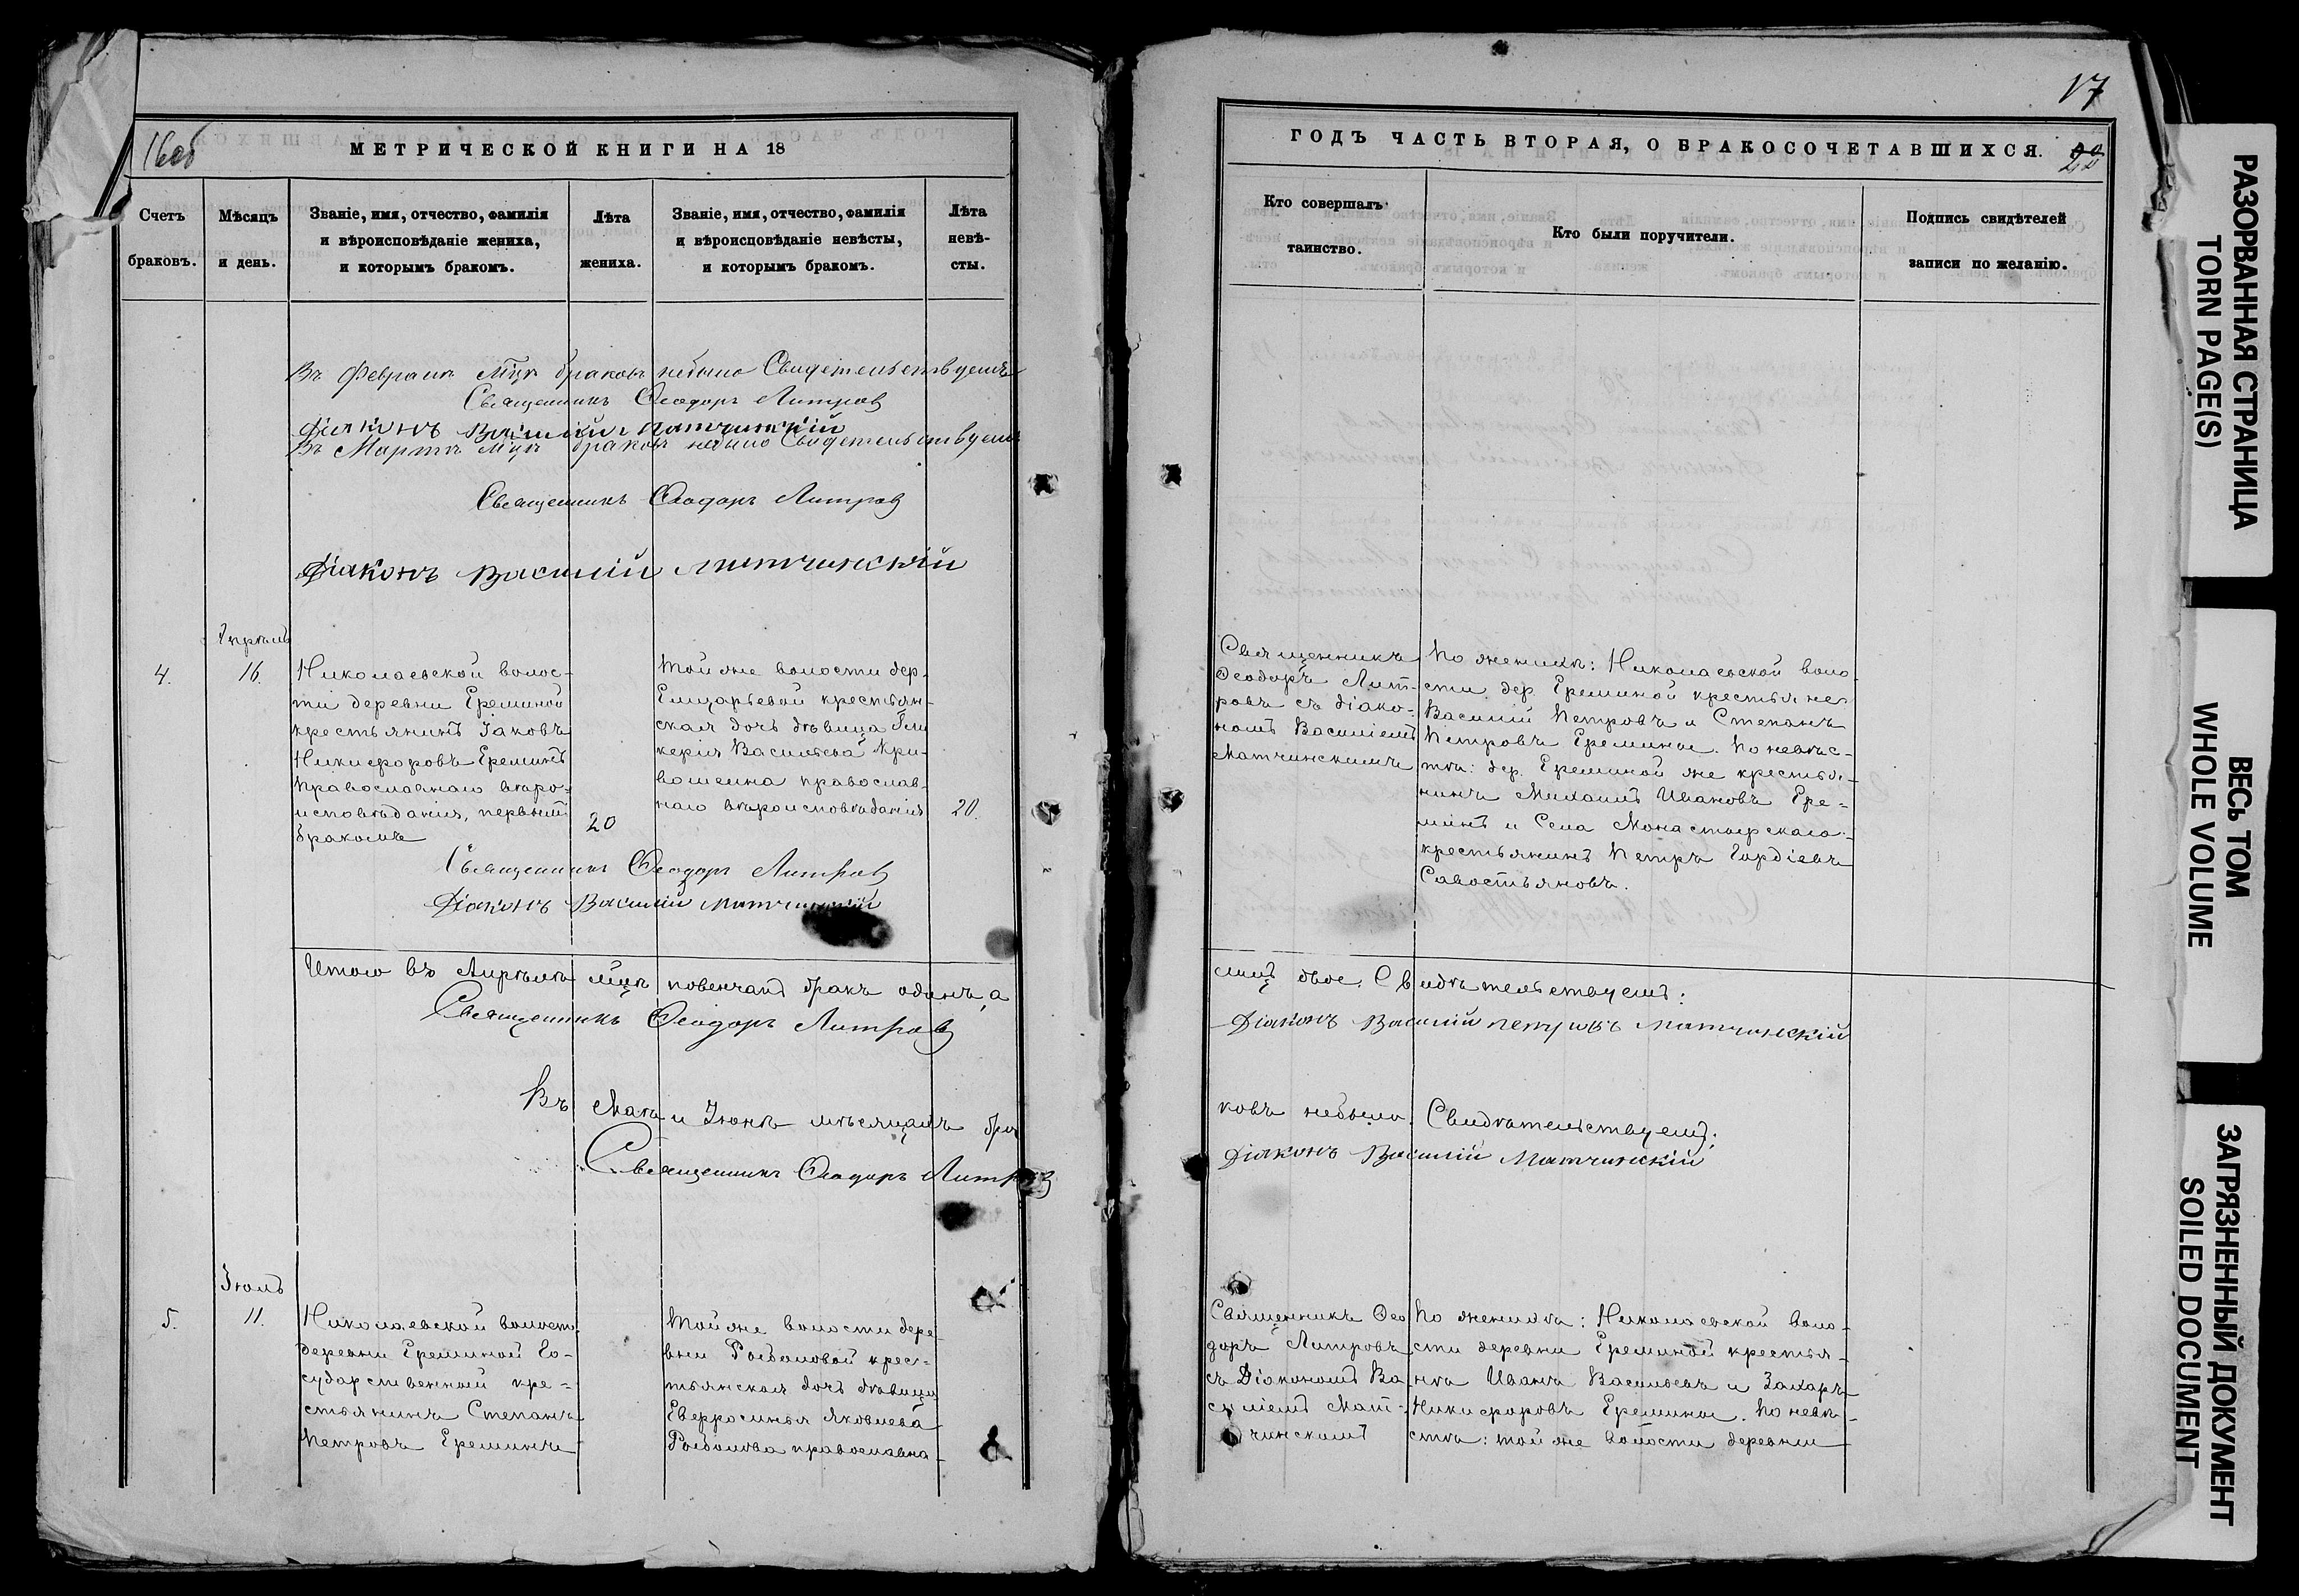 16об
МЕТРИЧЕСКОЙ КНИГИ НА 18
Счетъ браковъ.
Мѣсяцъ и день.
Званіе, имя, отчество, фамилія
и вѣроисповѣданіе жениха,
и которымъ бракомъ.
Лѣта
жениха.
Званіе, имя, отчество, фамилія
и вѣроисповѣданіе невѣсты,
и которымъ бракомъ.
Лѣта
невѣ-
сты.
Въ Февралѣ мцѣ браковъ небыло Свидетельствуемъ
Священникъ Ѳеодоръ Литров
Діяконъ Василій Матчинскій
Въ Мартѣ мцѣ браковъ небыло Свидетельствуемъ
Священникъ Ѳеодоръ Литров
Діаконъ Василій Матчинскій
Апрѣль
4.
16.
Николаевской волос-
ти деревни Ереминой
крестьянинъ Іаковъ
Никифоровъ Ереминъ
православнаго вѣро-
исповѣданія, первымъ
бракомъ
20
Той же волости дер.
Елизарьевой крестьян-
ская дочь дѣвица Гли
керія Васильева Кри-
вошеина православ-
наго вѣроисповѣданія
20.
Священникъ Ѳеодоръ Литров
Діаконъ Василій Матчинскій
Итого въ Апрѣлѣ мцѣ повенчанъ бракъ одинъ, а
Священникъ Ѳеодоръ Литров
Въ Маѣ и Іюнѣ мѣсяцахъ бра
Священникъ Ѳеодоръ Литров
Іюль
5.
11.
Николаевской волости
деревни Ереминой Го-
сударственной кре-
стьянинъ Степанъ
Петровъ Ереминъ
Той же волости дере-
вни Рыболовой крес-
тьянская дочь дѣвица
Евфросинья Яковлева
Рыболова православна-
17
ГОДЪ ЧАСТЬ ВТОРАЯ, О БРАКОСОЧЕТАВШИХСЯ.
Кто совершалъ
таинство.
Кто были поручители.
Подпись свидѣтелей
записи по желанію.
Священникъ
Ѳеодоръ Лит-
ровъ съ діако-
номъ Василіемъ
Матчинскимъ
По женихѣ: Николаевской воло-
сти дер. Ереминой крестьяне
Василій Петровъ и Степанъ
Петровъ Еремины. По невѣс-
тѣ: дер. Ереминой же крестья-
нинъ Михаилъ Ивановъ Ере-
минъ и Села Монастырскаго
крестьянинъ Петръ Гордіевъ
Савостьяновъ.
лицъ двое. Свидѣтельствуемъ:
Діаконъ Василій Петровъ Матчинскій
ковъ небыло. Свидѣтельствуемъ:
Діаконъ Василій Матчинскій
Священникъ Ѳео
доръ Литровъ
съ Діакономъ Ва
силіемъ Мат-
чинскимъ
По женихѣ: Николаевской воло-
сти деревни Ереминой крестья-
нѣ Иванъ Васильевъ и Захаръ
Никифоровъ Еремины. По невѣ-
стѣ: той же волости деревни
РАЗОРВАННАЯ СТРАНИЦА
TORN PAGE(S)
ВЕСЬ ТОМ
WHOLE VOLUME
ЗАГРЯЗНЕННЫЙ ДОКУМЕНТ
SOILED DOCUMENT